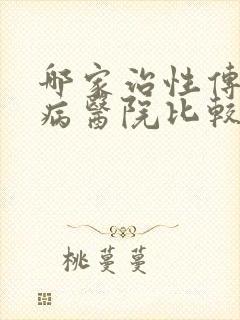 哪家治性傳
病醫院比較
桃蔓蔓